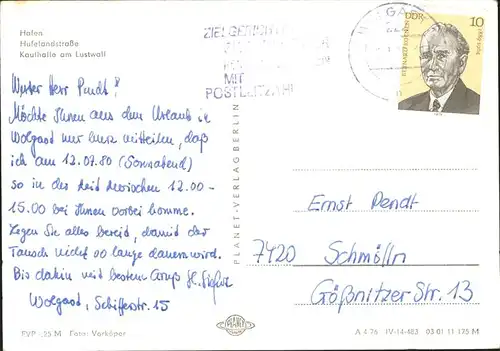 Hafen
Hufelandstraße
Kaufhalle am Lustwall
ZIELGERICHTET
MIT
POSTLEITZAHL
WOLGAST
DDR
10
Werter Herr Pendt!
Möchte Ihnen aus dem Urlaub in
Wolgast nur kurz mitteilen, daß
ich am 12.07.80 (Sonnabend)
so in der Zeit zwischen 12.00-
15.00 bei Ihnen vorbei komme.
Legen Sie alles bereit, damit der
Tausch nicht so lange dauern wird.
Bis dahin mit bestem Gruß H.
Wolgast, Schifferstr. 15
PLANET-VERLAG BERLIN
Ernst Pendt
7420 Schmölln
Gößnitzer Str. 13
EVP -,25 M Foto: Vorköper
PLANET
A 4 76 IV-14-483 03 01 11 175 M